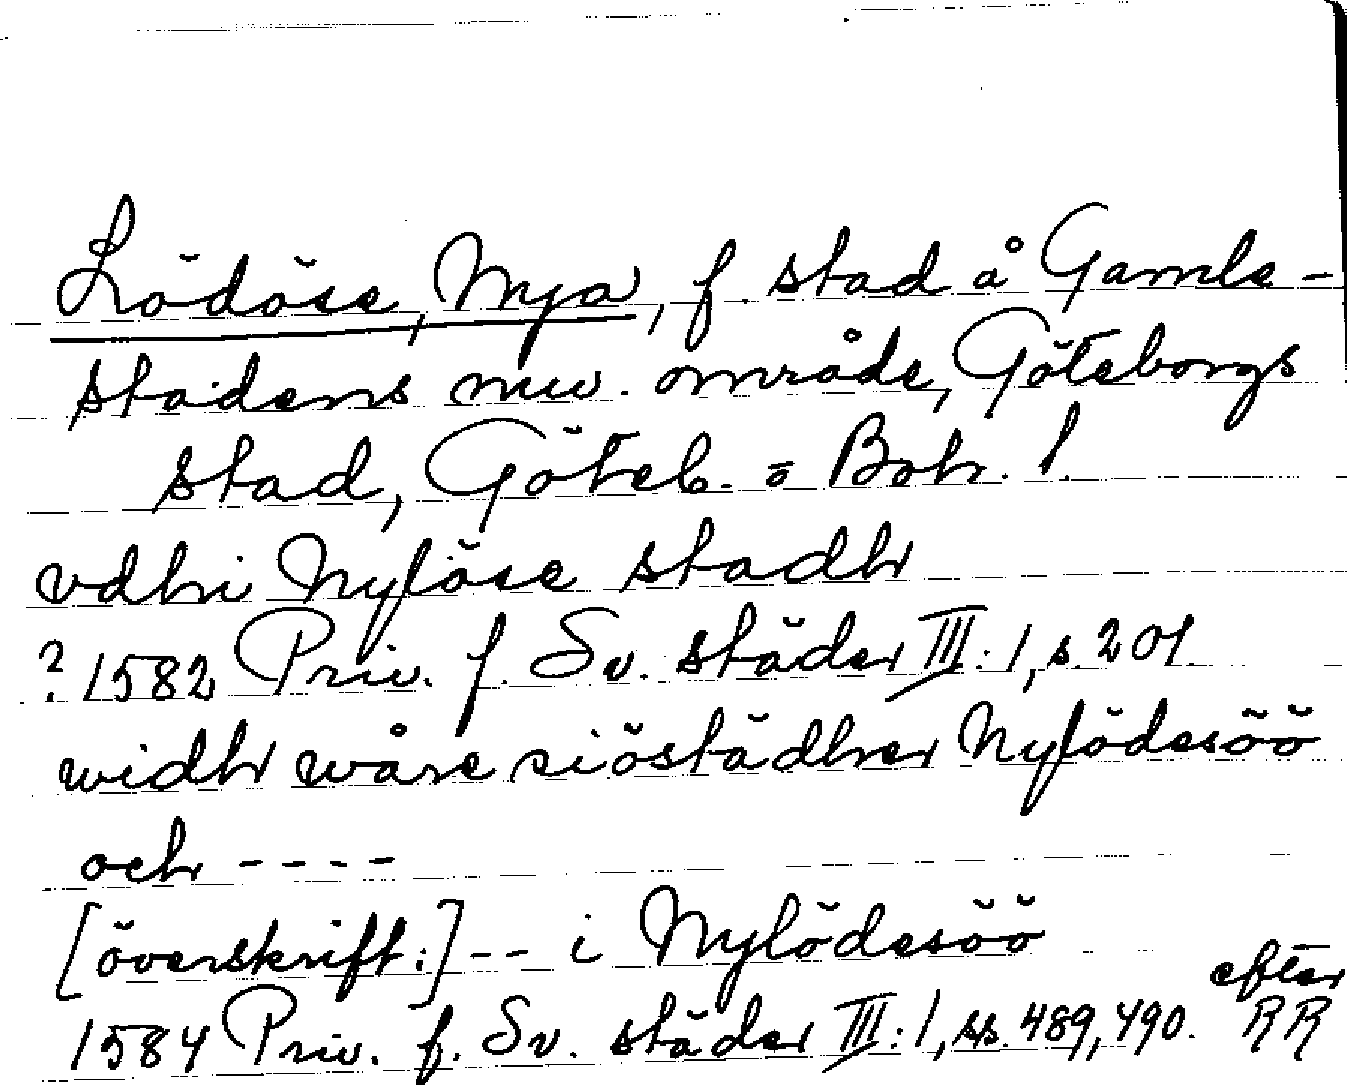 Lödöse, Nya, f. stad å Gamle-
stadens nuv. område, Göteborgs
stad, Göteb. o Boh. l.
vdhi Nylöse stadh
? 1582 Priv. f. Sv. städer III:1, s. 201
widh wåre siöstädher Nylödesöö
och ----
[överskrift:] -- i Nylödesöö
efter
1584 Priv. f. Sv. städer III:1, ss. 489, 490. RR